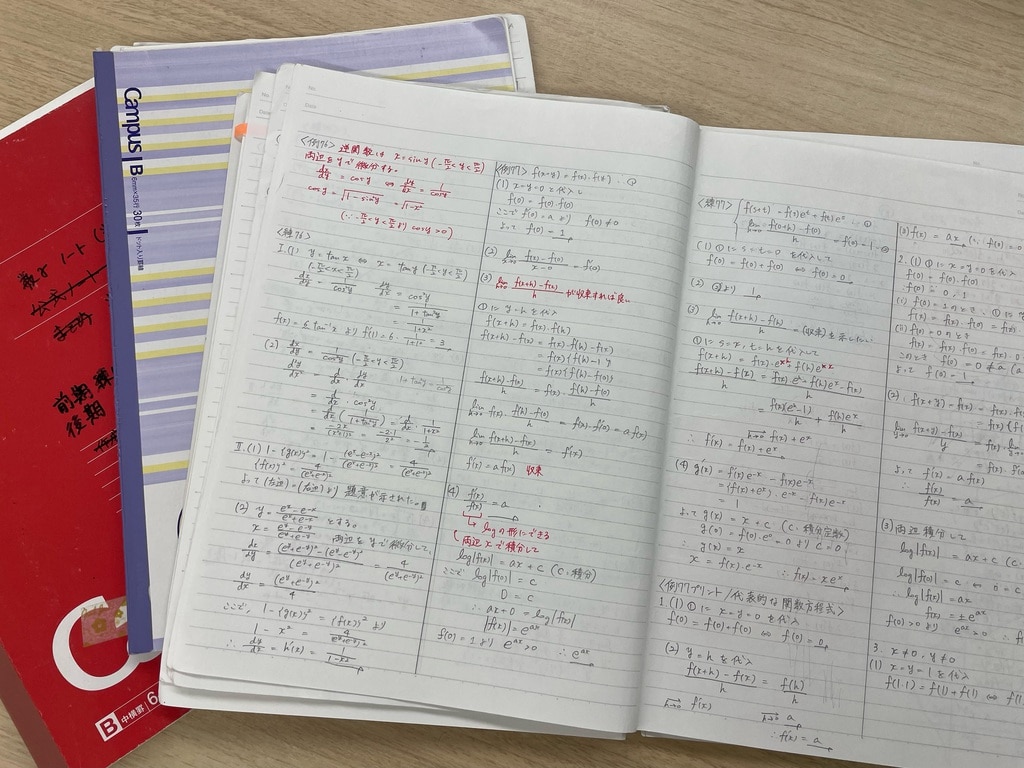 Campus
B
6mm×35行
30枚
ドット入り罫線
前期
後期
C
B 中横罫 6
No.
Date
<例76> 逆関数は x = sin y (-π/2 < y < π/2)
両辺をyで微分する。
dx/dy = cos y ⇔ dy/dx = 1/cos y
cos y = √(1-sin²y) = √(1-x²)
(∵ -π/2 < y < π/2 より cos y > 0)
<練76>
I.(1) y = tan⁻¹x ⇔ x = tan y (-π/2 < y < π/2)
dx/dy = 1/cos²y dy/dx = cos²y
= 1/(1+tan²y)
= 1/(1+x²)
f(x) = 6 tan⁻¹x より f'(1) = 6・1/(1+1²) = 3
(2) dx/dy = 1/cos²y (-π/2 < y < π/2)
= d/dx・cos²y
= d/dx (1/(1+tan²y)) = d/dx 1/(1+x²)
II.(1) 1-{g(x)}² = 1 - (eˣ-e⁻ˣ)²/(eˣ+e⁻ˣ)² = 4/(eˣ+e⁻ˣ)²
{f(x)}² = 4/(eˣ+e⁻ˣ)²
よって (左辺)=(右辺) より 題意が示された。
(2) y = (eˣ-e⁻ˣ)/(eˣ+e⁻ˣ)
x = (eʸ-e⁻ʸ)/(eʸ+e⁻ʸ) とする。
両辺をyで微分して、
dx/dy = {(eʸ+e⁻ʸ)²-(eʸ-e⁻ʸ)²}/(eʸ+e⁻ʸ)² = 4/(eʸ+e⁻ʸ)²
dy/dx = (eʸ+e⁻ʸ)²/4
ここで、 1-{g(x)}² = {f(x)}² より
1-x² = 4/(eʸ+e⁻ʸ)²
∴ dy/dx = h'(x) = 1/(1-x²)
<例77> f(x+y) = f(x)・f(y) … ①
(1) x=y=0 を代入し
f(0) = f(0)・f(0)
ここで f(0) ≠ 0
よって f(0) = 1
(2) lim f(x)-f(0)/x-0 = f'(0)
(3) lim h→0 {f(x+h)-f(x)}/h が収束すれば良い
①に y=h を代入
f(x+h) = f(x)・f(h)
f(x+h)-f(x) = f(x)・f(h)-f(x)
= f(x){f(h)-1}
= f(x){f(h)-f(0)}
{f(x+h)-f(x)}/h = f(x)・{f(h)-f(0)}/h
lim h→0 f(x)・{f(h)-f(0)}/h = f(x)・f'(0) = a f(x)
lim h→0 {f(x+h)-f(x)}/h = f'(x)
f'(x) = a f(x) 収束
(4) f'(x)/f(x) = a
logの形にできる
両辺xで積分して
log|f(x)| = ax + c (C:積分)
ここで log|f(0)| = c
0 = c
∴ ax+0 = log|f(x)|
|f(x)| = eᵃˣ
f(0) = 1 より eᵃˣ > 0 ∴ eᵃˣ
<練77>
f(s+t) = f(s)eᵗ + f(t)eˢ … ①
lim h→0 {f(0+h)-f(0)}/h = f'(0) = 1 … ②
(1) ①に s=t=0 を代入して
f(0) = f(0)+f(0) ⇔ f(0) = 0
(2) ②より 1
(3) lim h→0 {f(x+h)-f(x)}/h = (収束)を求めたい
①に s=x, t=h を代入して
f(x+h) = f(x)・eʰ + f(h)eˣ
{f(x+h)-f(x)}/h = {f(x)・eʰ + f(h)eˣ - f(x)}/h
= f(x)(eʰ-1)/h + f(h)eˣ/h
h→0 f(x)+eˣ
∴ f'(x) = f(x)+eˣ
(4) g'(x) = f'(x)・e⁻ˣ - f(x)・e⁻ˣ
= {f(x)+eˣ}・e⁻ˣ - f(x)・e⁻ˣ
= 1
よって g(x) = x + c (C:積分定数)
g(0) = f(0)・e⁰ = 0 より C = 0
∴ g(x) = x
x = f(x)・e⁻ˣ ∴ f(x) = xeˣ
<例77プリント/代表的な関数方程式>
1.(1) ①に x=y=0 を代入
f(0) = f(0)+f(0) ⇔ f(0) = 0
(2) y=h を代入
{f(x+h)-f(x)}/h = f(h)/h
h→0 f'(x) h→0 a
∴ f'(x) = a
(3) f(x) = ax (∵ f(0)=0
2.(1) ①に x=y=0 を代入
f(0) = f(0)・f(0)
f(0) = 0, 1
よって f(0) = 1
(2) f(x+y)-f(x) = f(x)
よって f'(x) = a f(x)
∴ f'(x)/f(x) = a
(3) 両辺積分して
log|f(x)| = ax + c (C
log|f(0)| = c ⇔ 0 =
∴ log|f(x)| = ax
f(x) = ±eᵃˣ
f(0) > 0 より eᵃˣ > 0 ∴ f
3. x≠0, y≠0
(1) x=y=1 を代入
f(1・1) = f(1)+f(1) ⇔ f(1